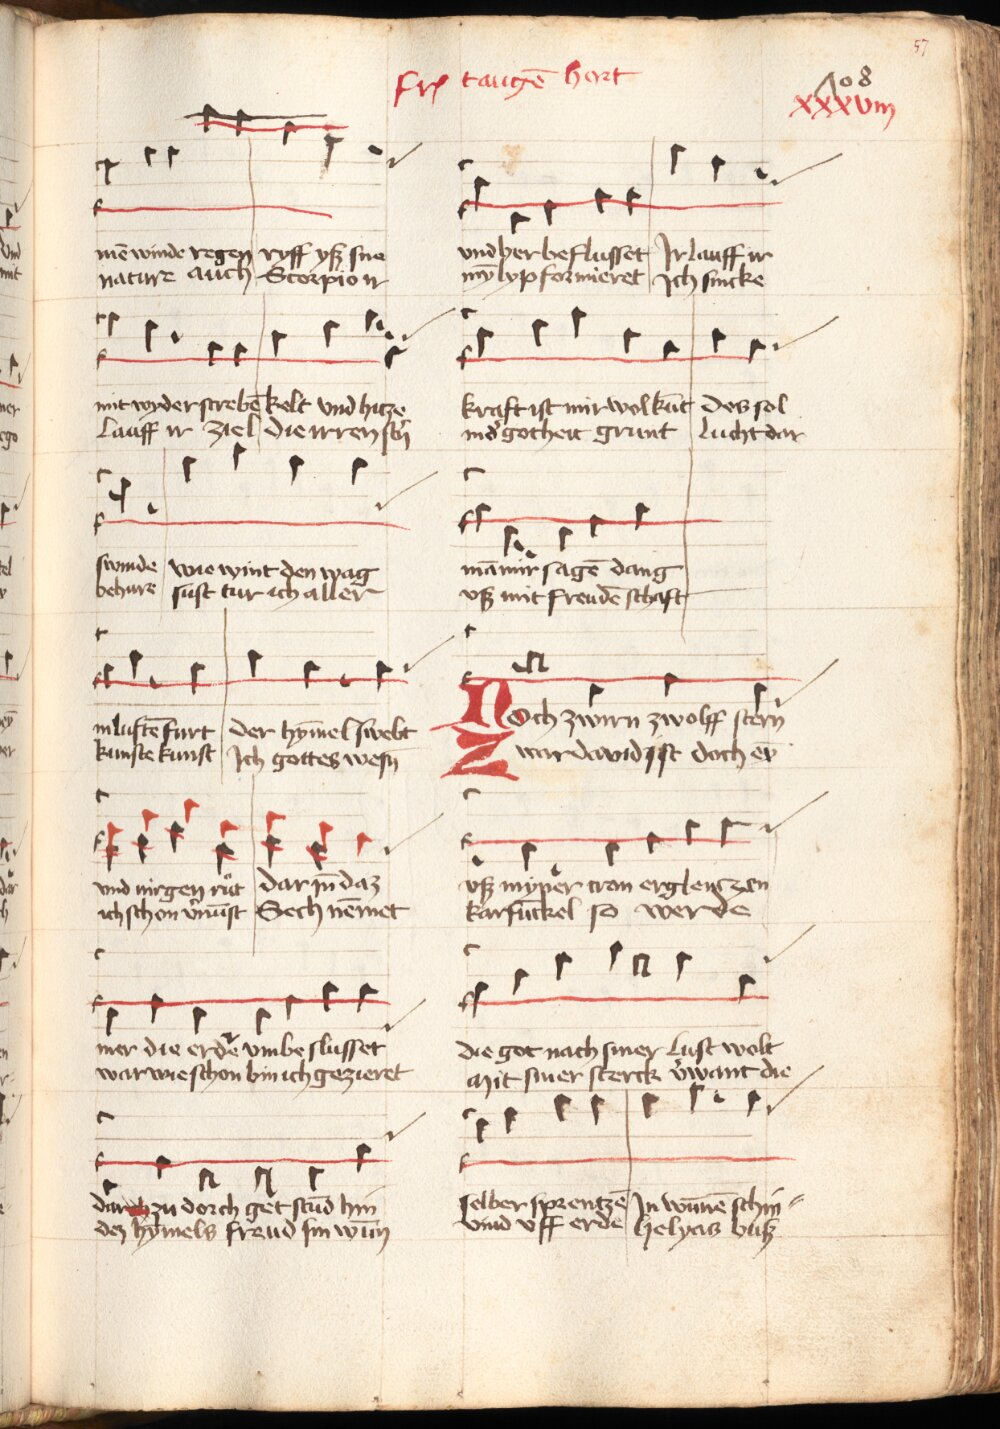 57
frē taugē hort
108
xxxvııı
mē winde regen ryff yß sne
nature auch Scorpio ir
mit wyderstrebē kelt vnd hitze
lauff ir ziel die irren stn̄
swinde wie wint den wag
behure sust tur ich aller
in luftē furt der hym̄el swebt
kunste kunst Ich gottes wesn̄
vnd nirgen růt dar in daz
ich schon v̓nūst Sech nēmet
mer die erde vmbeslusset
war wie schon bin ich gezieret
dar zu dorch get stūd hin
dez hymels freud sin wūn
vnd berbeflusset Ir lauff ir
myn lyp formieret Ich sincke
kraft ist mir wol kūt des sol
in d̓ gotheit grunt lucht dar
mā mir sagē dang
vß mit freudē schaft
Noch zwirn zwolff stern
Zwar dauid ist doch
vß myner cron erglentzen
karfūckel so werde
die got nach siner lust wolt
Mit siner sterck v̓want die
selber sprentzē In wūnē schin
vnd vff erde helyas